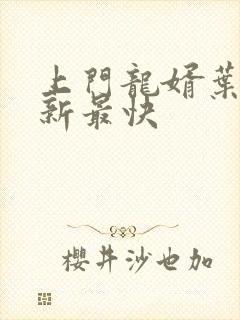 上門龍婿葉
新最快
櫻井沙也加